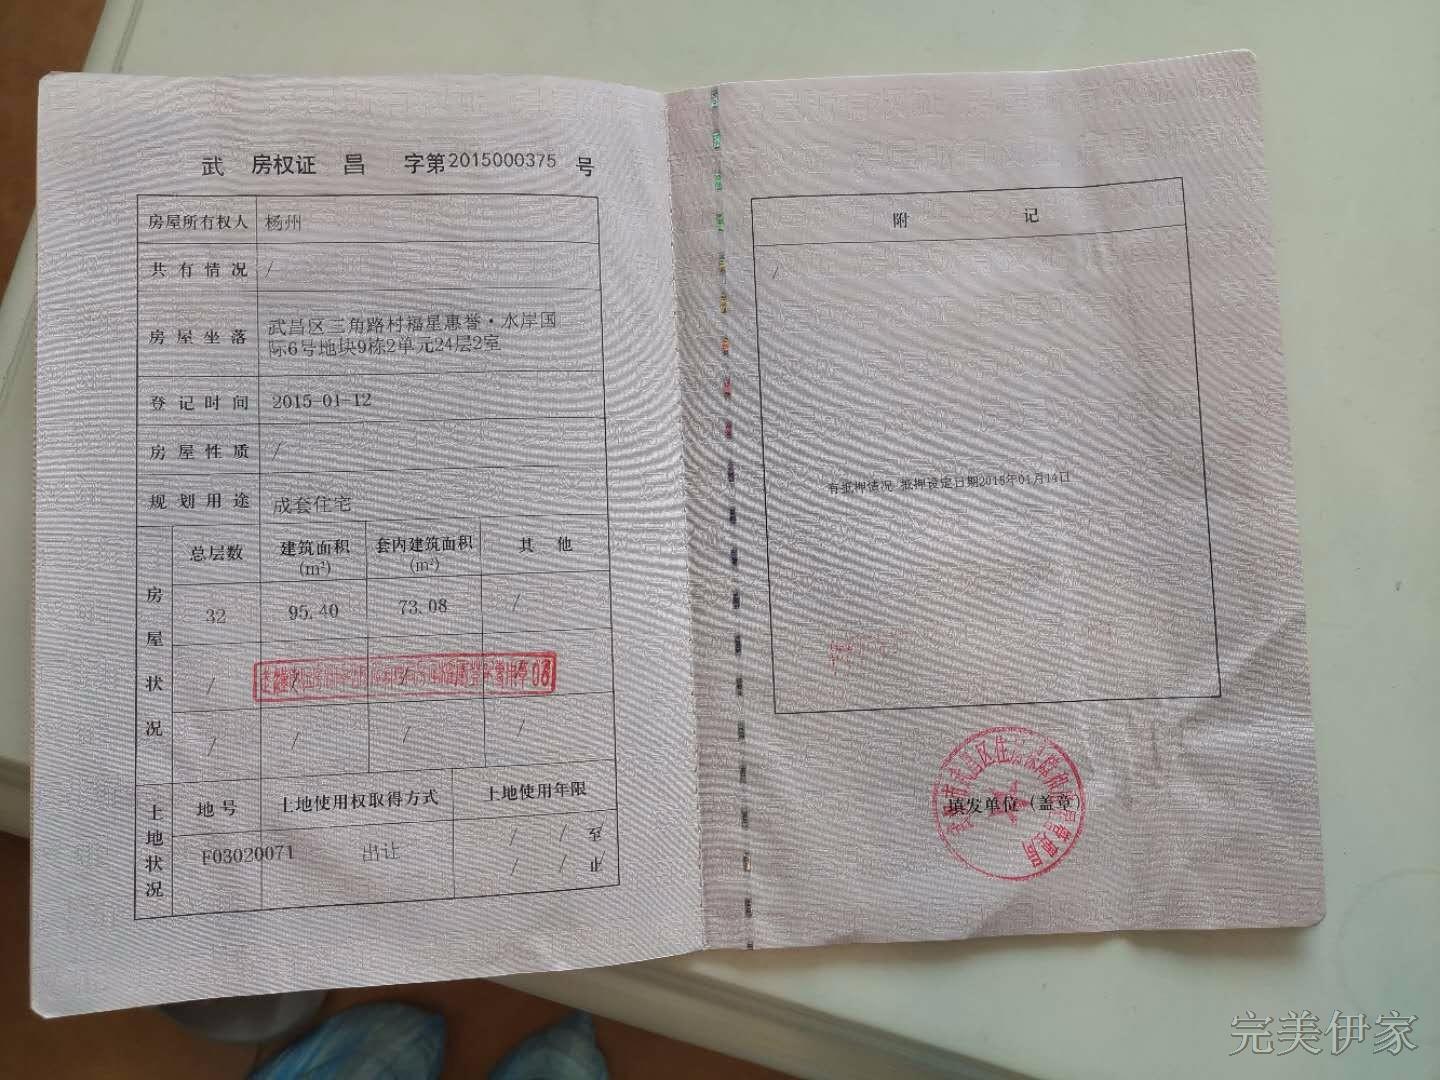 武 房权证 昌 字第2015000375 号
房屋所有权人 杨州
共有情况 /
房屋坐落 武昌区三角路村福星惠誉·水岸国
际6号地块9栋2单元24层2室
登记时间 2015-01-12
房屋性质 /
规划用途 成套住宅
房屋状况
总层数 建筑面积(m²) 套内建筑面积(m²) 其他
32 95.40 73.08 /
/ / / /
/ / / /
土地状况
地号 土地使用权取得方式 土地使用年限
F03020071 出让 / / 至
/ / 止
附 记
/
有抵押情况 抵押设定日期2015年01月14日
填发单位（盖章）
完美伊家